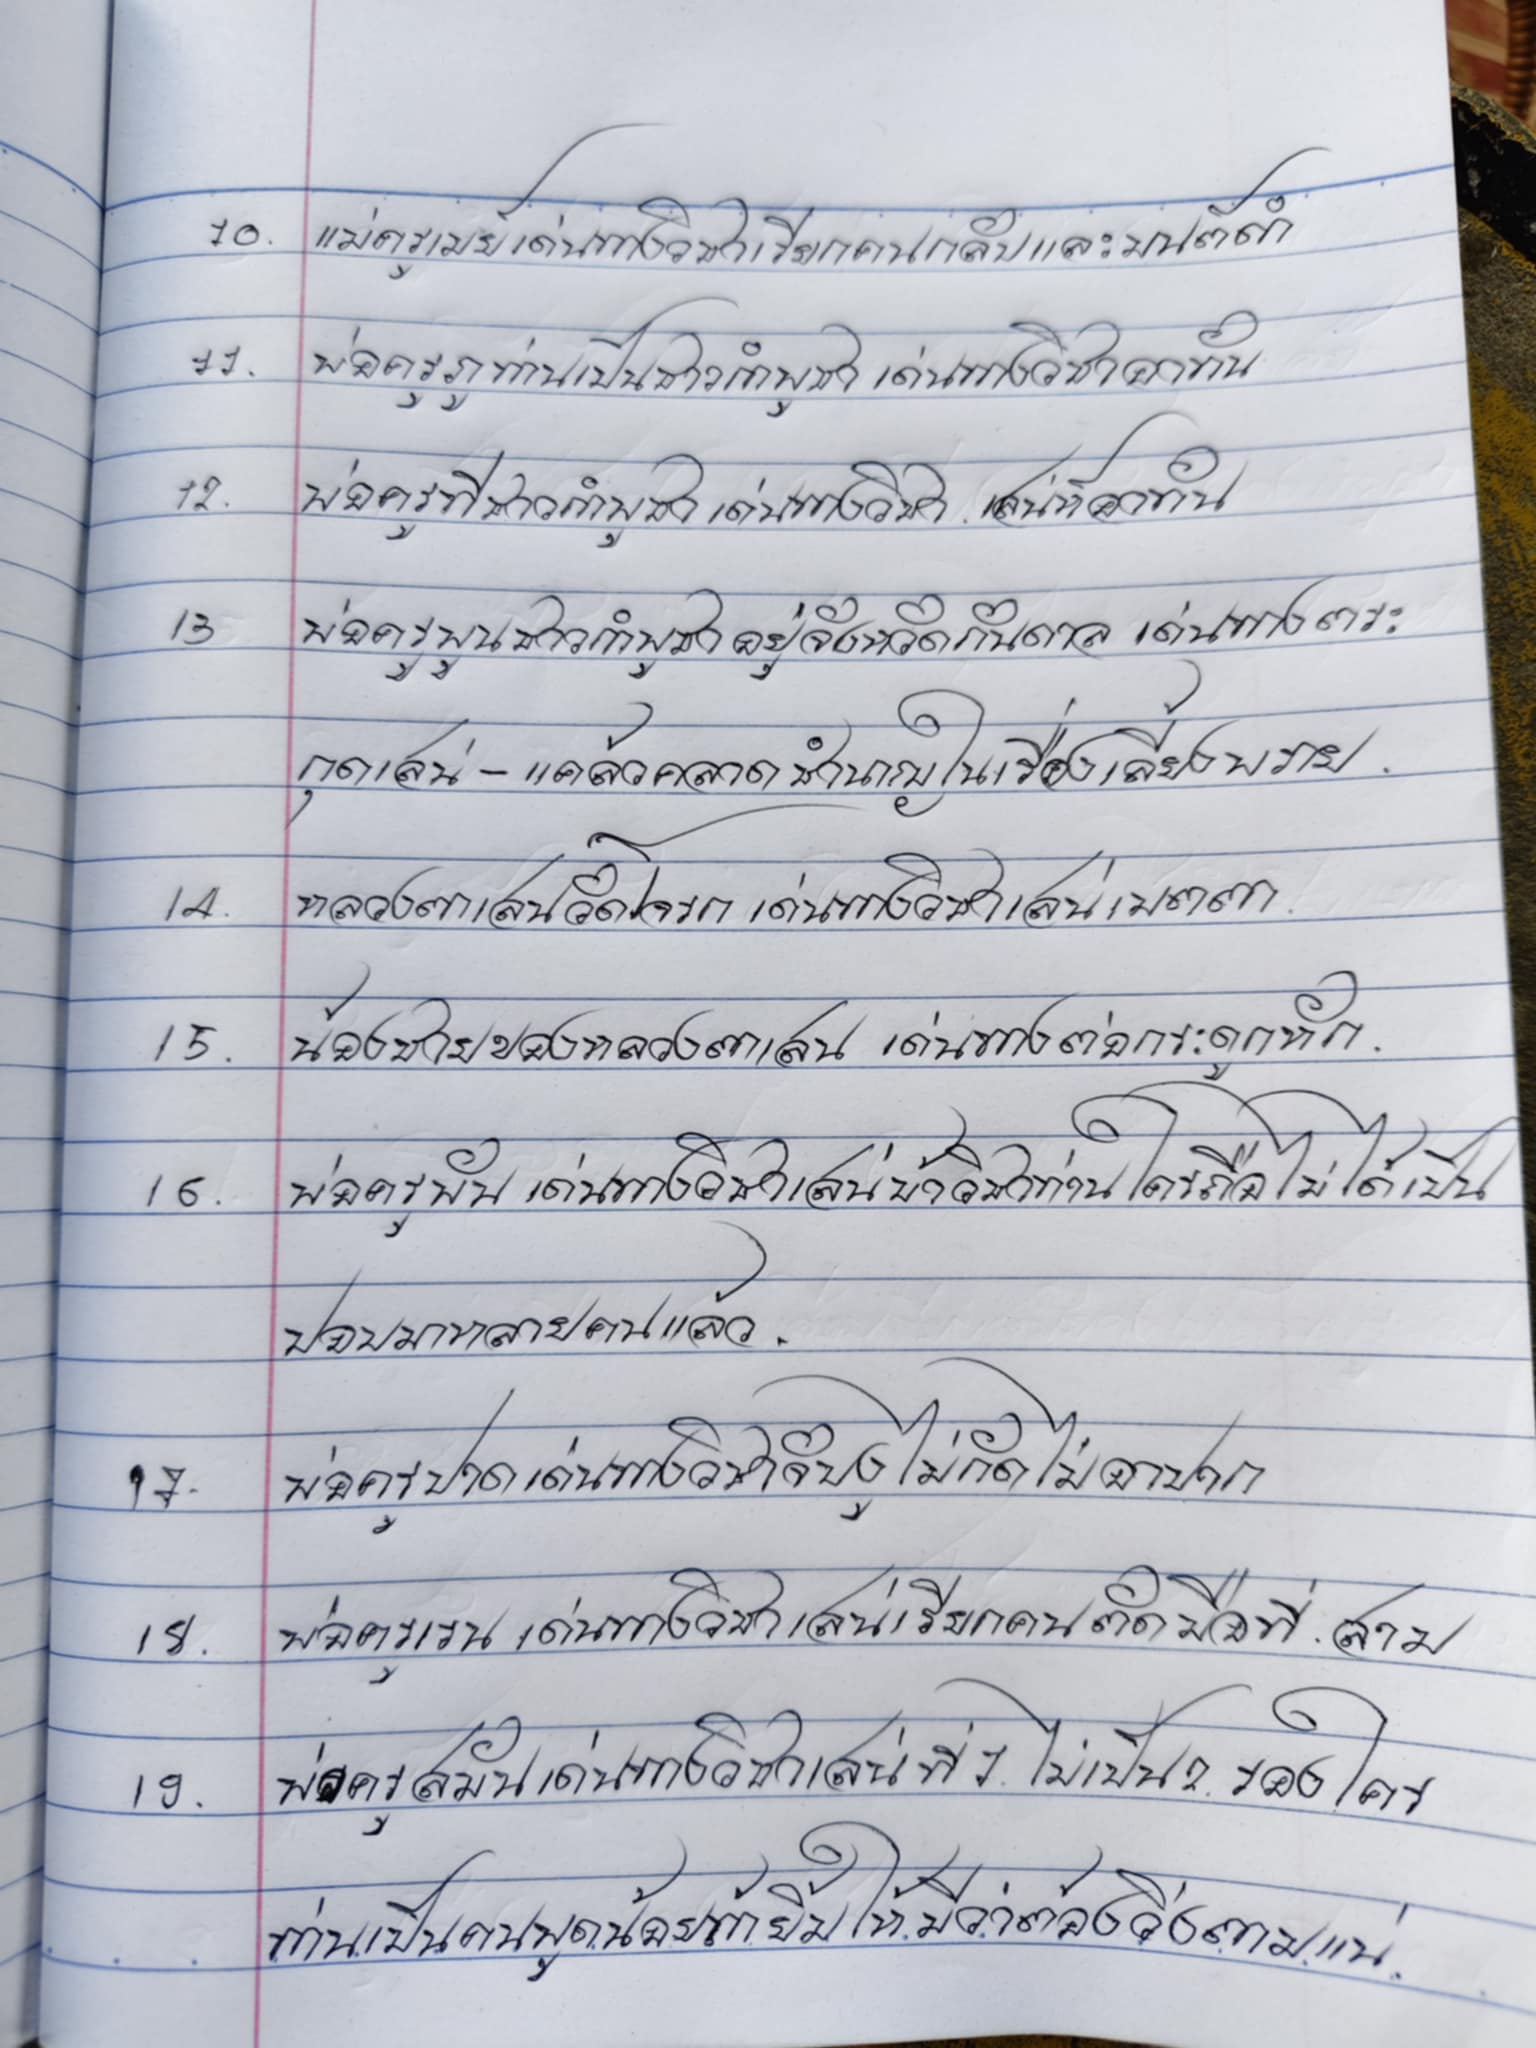 10. แม่ครูเมย์เด่นทางวิชาเรียกคนกลับและมนต์ดำ
11. พ่อครูภูท่านเป็นชาวกำพูชา เด่นทางวิชาอาถัน
12. พ่อครูทีชาวกำพูชา เด่นทางวิชา.เสน่ห์อาถัน
13 พ่อครูพูนชาวกำพูชาอยู่จังหวัดกันดาล เด่นทางตระ
กุดเสน่ - แคล้วคลาดชำนาญในเรื่องเลี้ยงพราย.
14. หลวงตาเสนวัดโจรก เด่นทางวิชาเสน่เมตตา.
15. น้องชายของหลวงตาเสน เด่นทางต่อกระดูกหัก.
16. พ่อครูพัน เด่นทางวิชาเสน่บ้าวิชาท่านใครถือไม่ได้เป็น
ปอบมาหลายคนแล้ว.
17. พ่อครูปาดเด่นทางวิชาจับงูไม่กัดไม่อาปาก
18. พ่อครูเรน เด่นทางวิชาเสน่เรียกคนตัดมือที่.สาม
19. พ่อครูสมันเด่นทางวิชาเสน่ที่ 1. ไม่เป็น 2. รองใคร
ท่านเป็นคนพูดน้อยถ้ายิ้มให้มีว่าต้องวิ่งตามแน่.